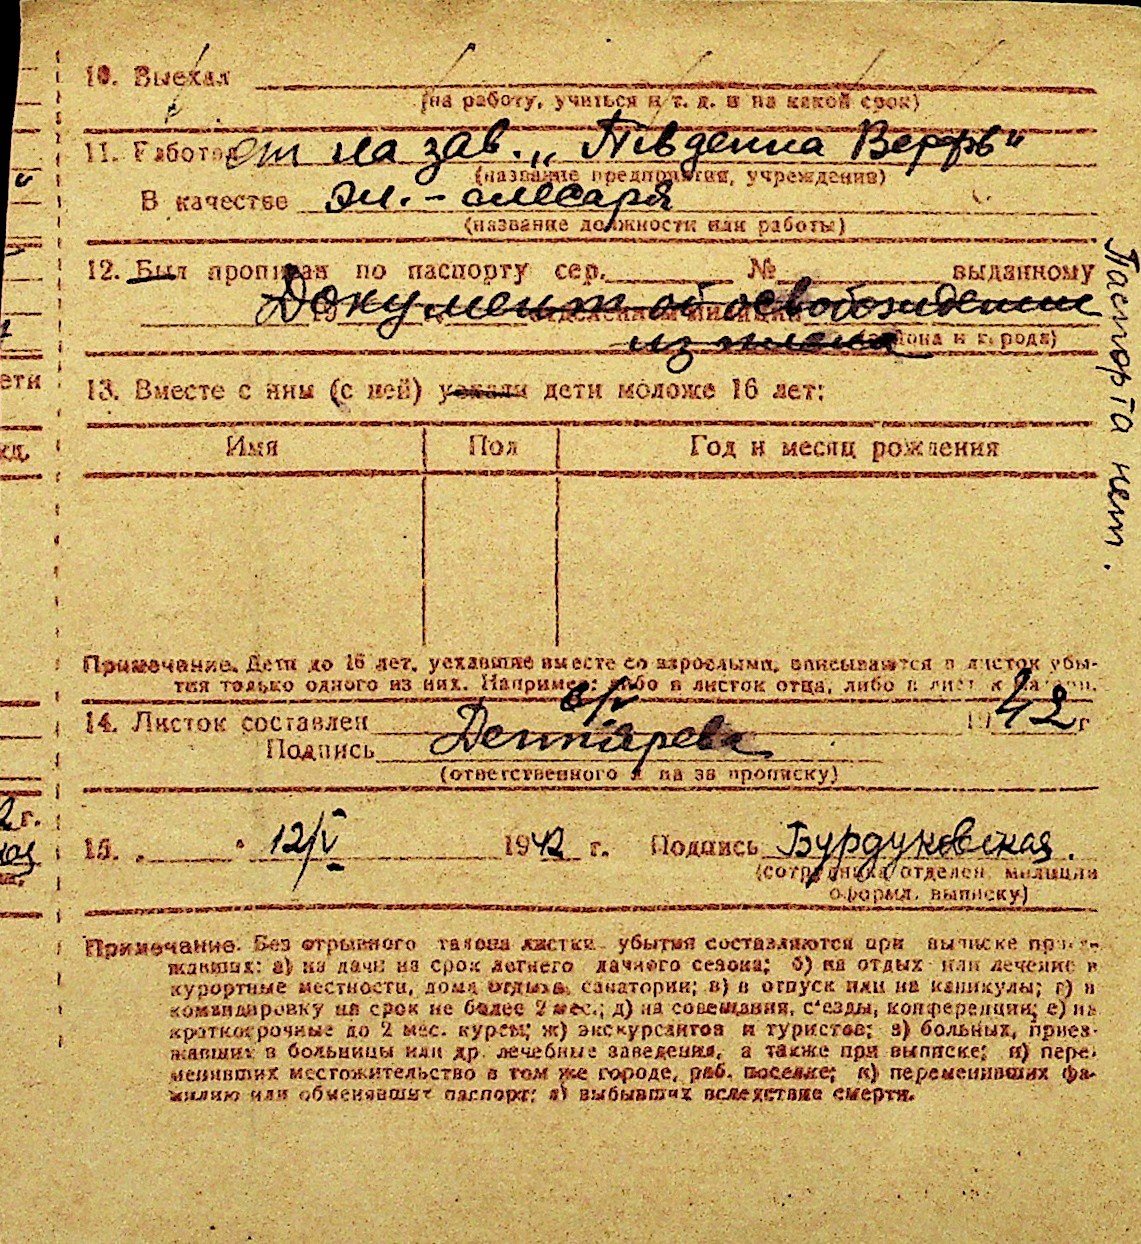 10. Выехал
(на работу, учиться и т. д. и на какой срок)
11. Работает на зав. „Південна Верфь"
(название предприятия, учреждения)
В качестве эл.-слесаря
(название должности или работы)
12. Был прописан по паспорту сер. № выданному
Документ об освобождении
из плена
района и города)
Паспорта нет.
13. Вместе с ним (с ней) уехали дети моложе 16 лет:
Имя Пол Год и месяц рождения
Примечание. Дети до 16 лет, уехавшие вместе со взрослыми, вписываются в листок убы-
тия только одного из них. Например: либо в листок отца, либо в листок матери.
14. Листок составлен 6/V 1942 г
Подпись Дегтярева
(ответственного л на за прописку)
15. „ " 12/V 1942 г. Подпись Бурдуковская.
(сотрудника отделен. милиции
оформл. выписку)
Примечание. Без отрывного талона листки убытия составляются при выписке приез-
жавших: а) на дачи на срок летнего дачного сезона; б) на отдых или лечение в
курортные местности, дома отдыха, санатории; в) в отпуск или на каникулы; г) в
командировку на срок не более 2 мес.; д) на совещания, съезды, конференции; е) на
краткосрочные до 2 мес. курсы; ж) экскурсантов и туристов; з) больных, приез-
жавших в больницы или др. лечебные заведения, а также при выписке; и) пере-
менивших местожительство в том же городе, раб. поселке; к) переменивших фа-
милию или обменявших паспорт; л) выбывших вследствие смерти.